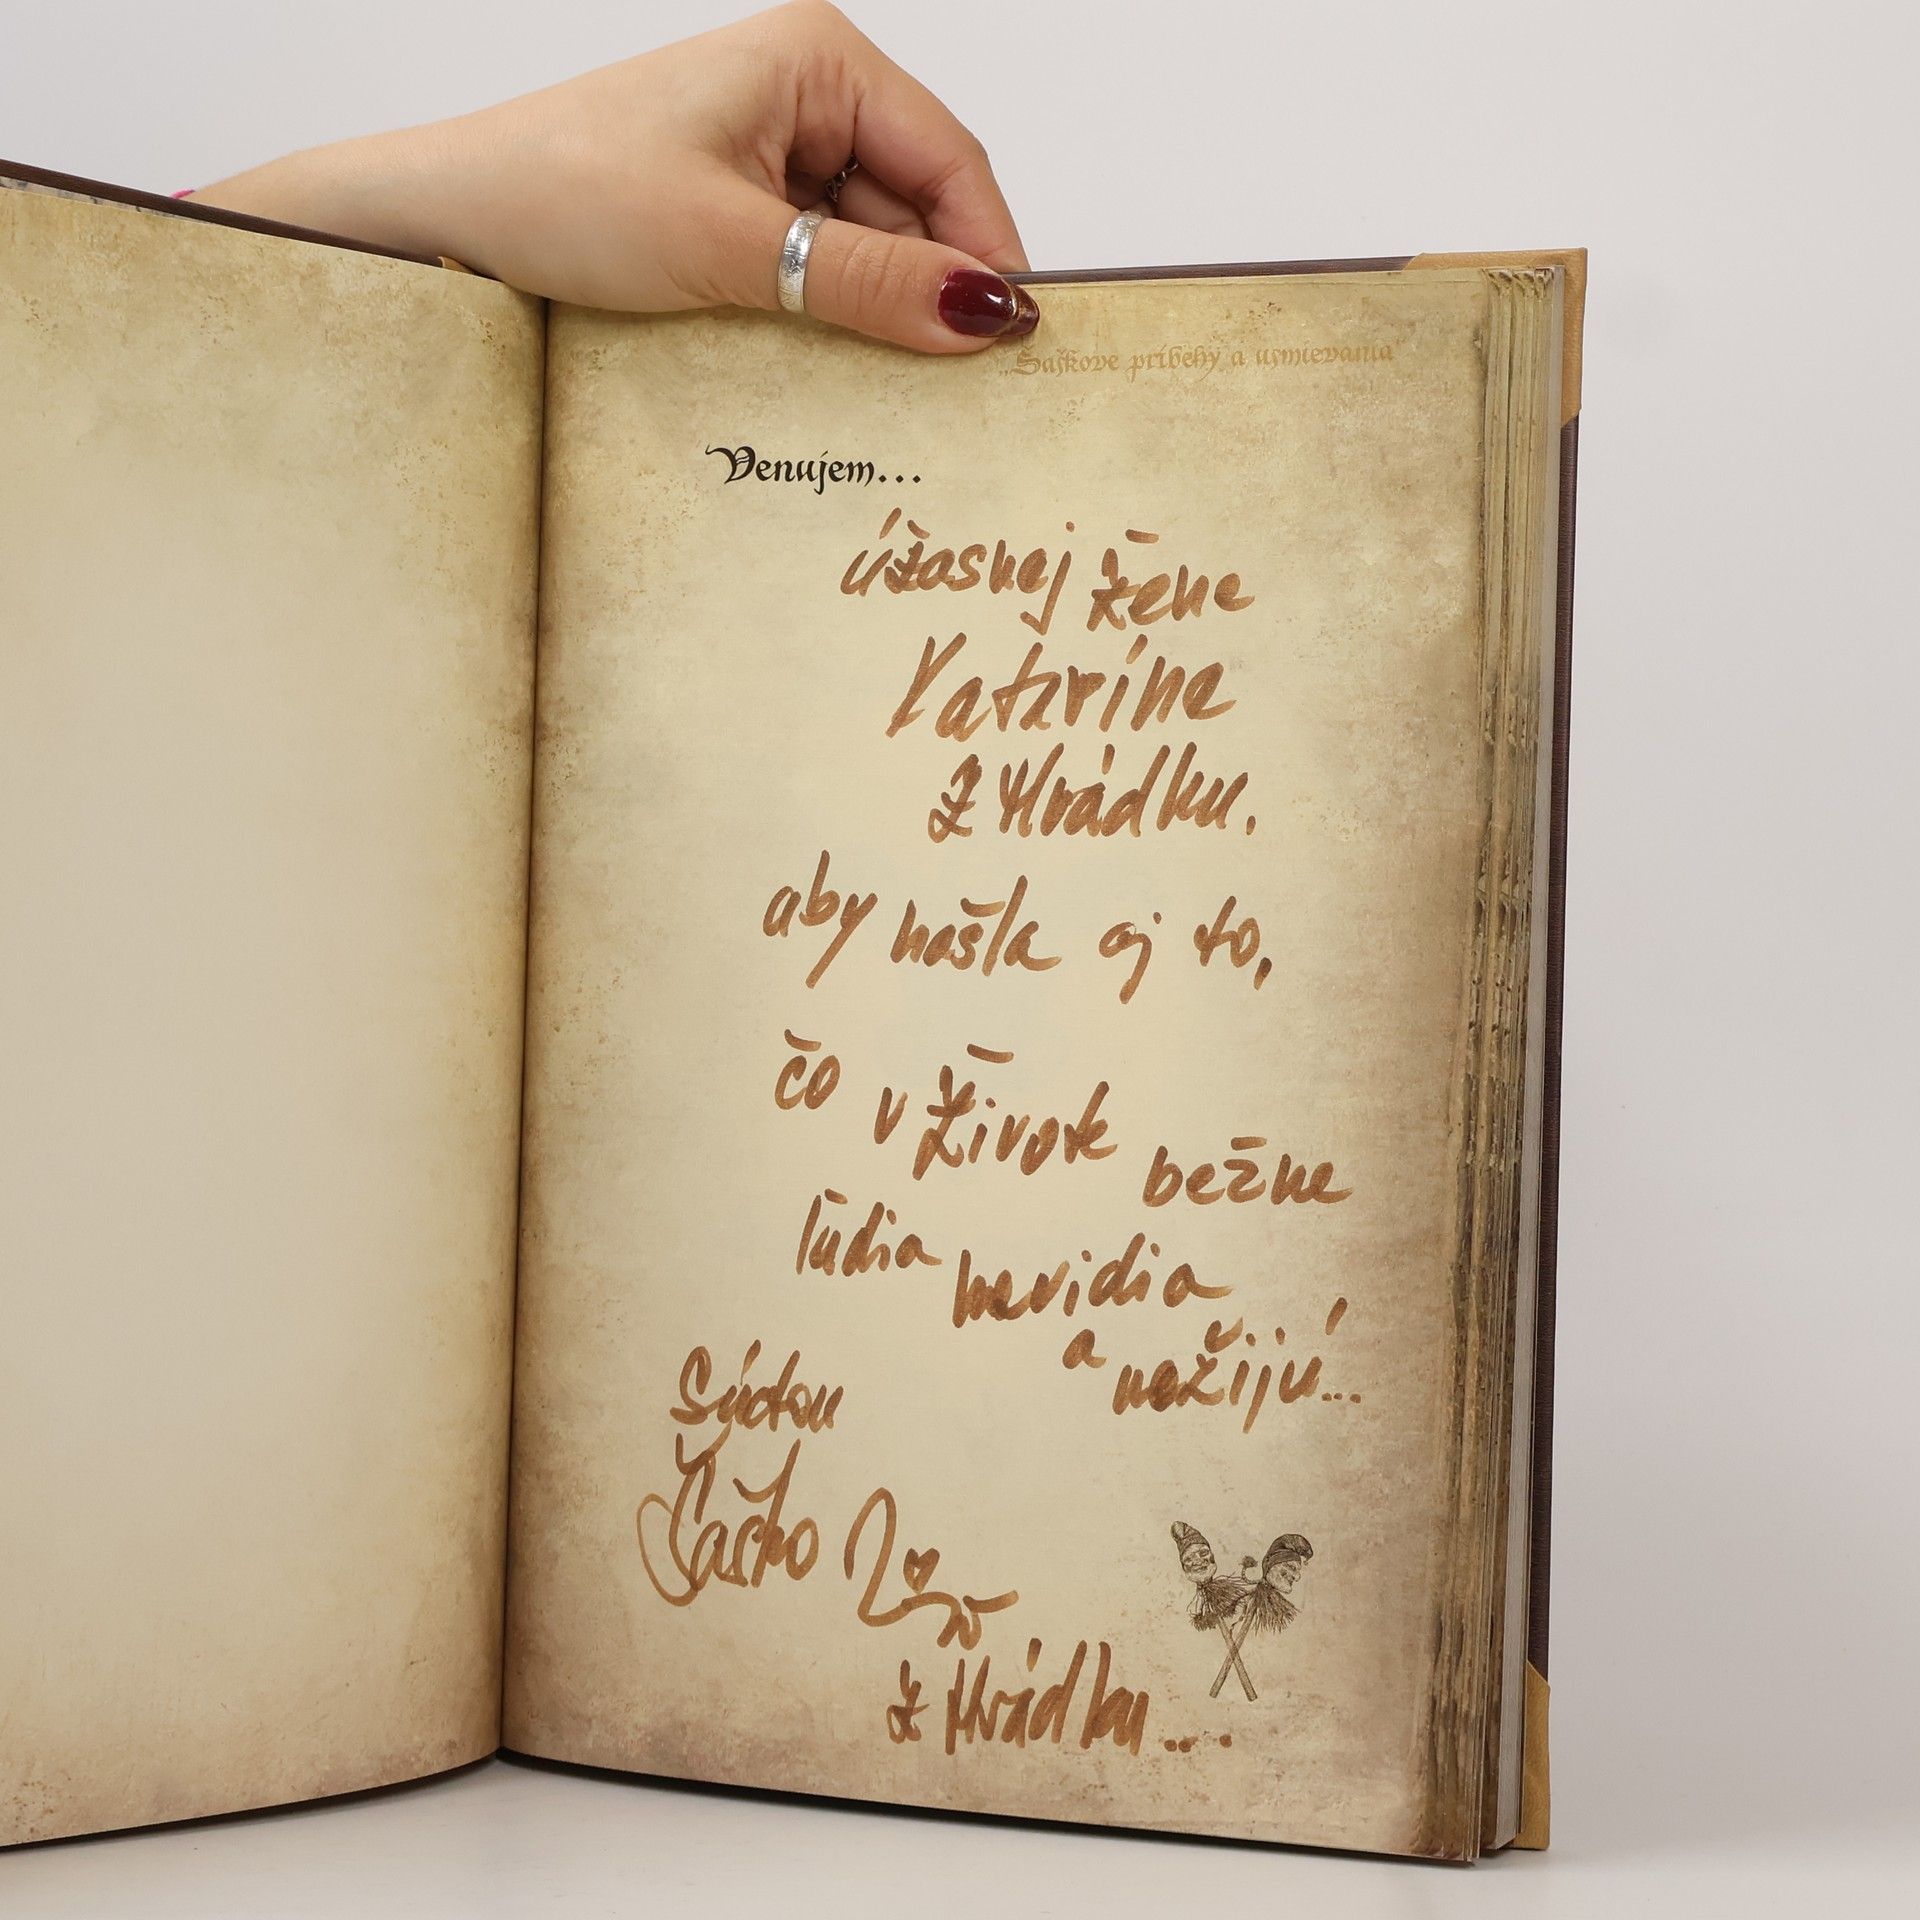 „Šaškove príbehy a usmievania“
Venujem...
úžasnej žene
Kataríne
z Hrádku,
aby našla aj to,
čo v živote bežne
ľudia nevidia
a nežijú...
S úctou
Šaško
z Hrádku....